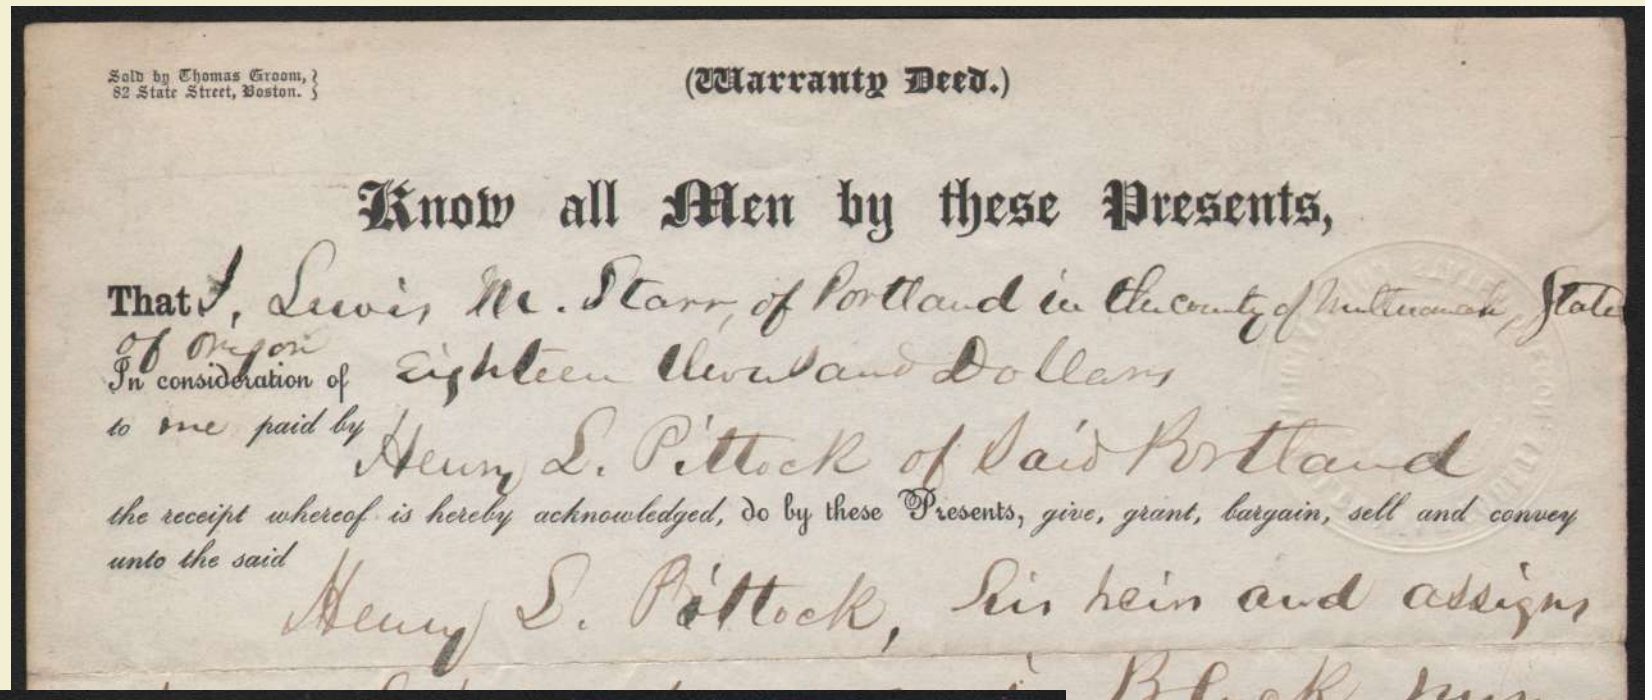 Sold by Thomas Groom,
82 State Street, Boston.
(Warranty Deed.)
Know all Men by these Presents,
That I, Lewis M. Starr, of Portland in the county of Multnomah, State
of Oregon
In consideration of Eighteen thousand Dollars
to me paid by
Henry L. Pittock of said Portland
the receipt whereof is hereby acknowledged, do by these Presents, give, grant, bargain, sell and convey
unto the said
Henry L. Pittock, his heirs and assigns
Block